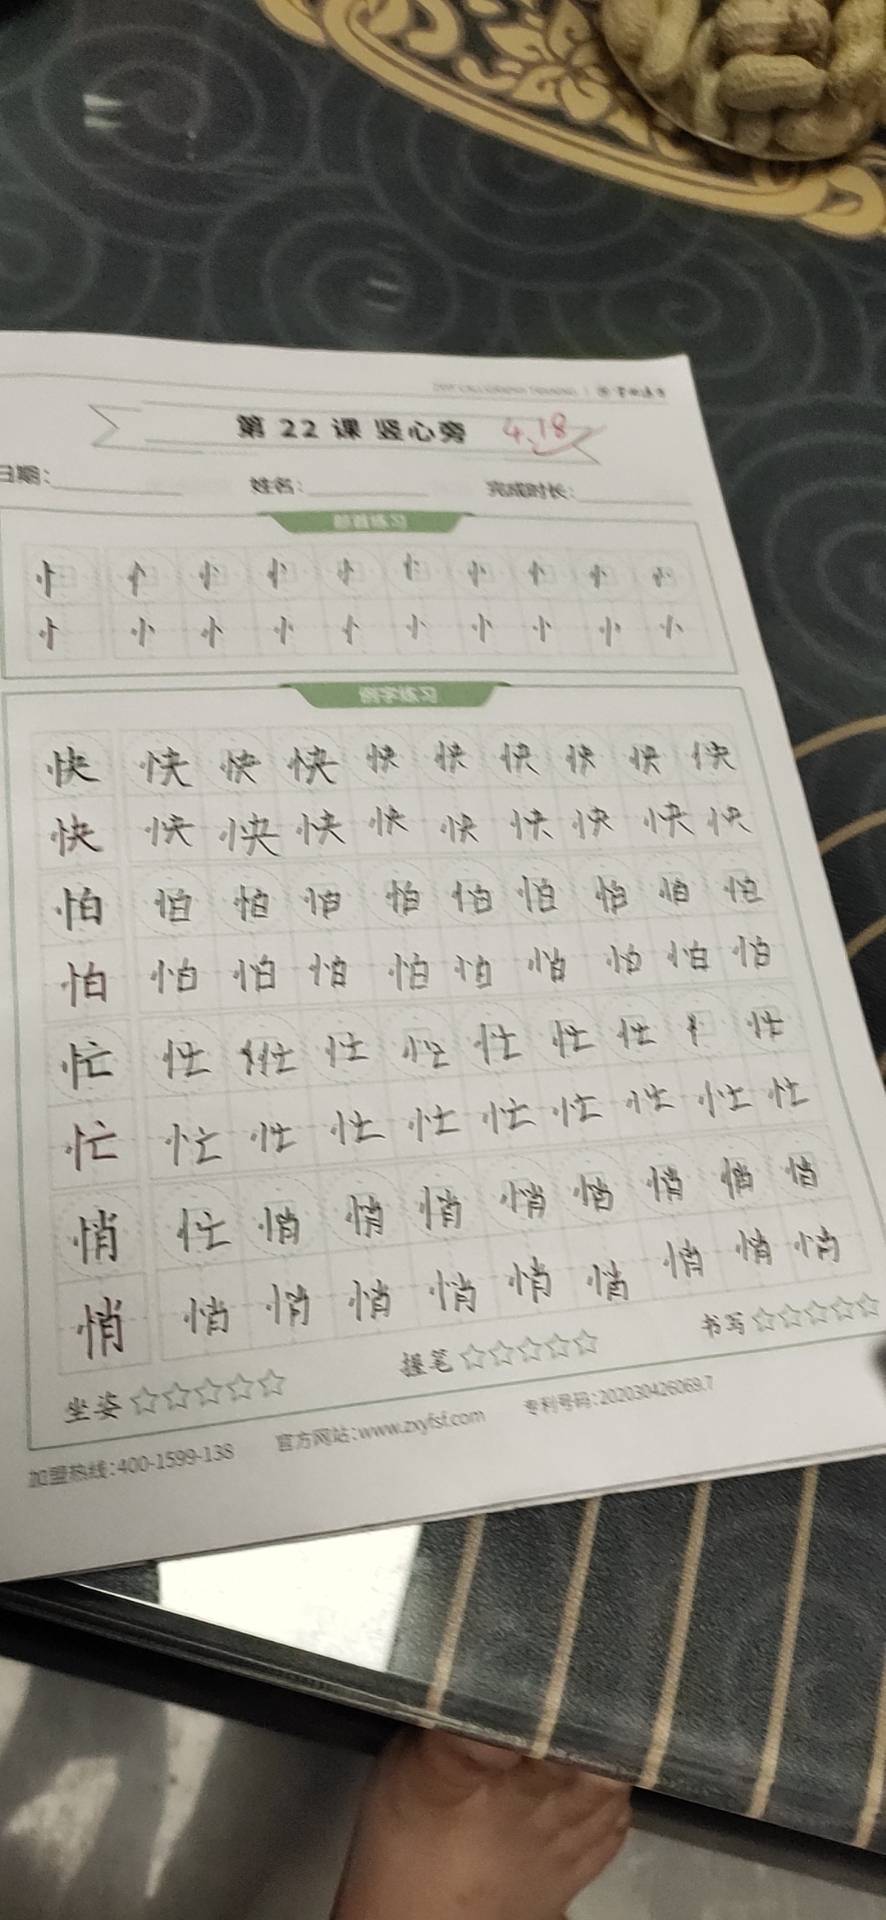 第 22 课 竖心旁 4.18
日期： 姓名： 完成时长：
部首练习
忄 忄 忄 忄 忄 忄 忄 忄 忄 忄
忄 忄 忄 忄 忄 忄 忄 忄 忄 忄
例字练习
快 快 快 快 快 快 快 快 快 快
快 快 快 快 快 快 快 快 快 快
怕 怕 怕 怕 怕 怕 怕 怕 怕 怕
怕 怕 怕 怕 怕 怕 怕 怕 怕 怕
忙 忙 忙 忙 忙 忙 忙 忙 忄 忙
忙 忙 忙 忙 忙 忙 忙 忙 忙 忙
悄 忙 悄 悄 悄 悄 悄 悄 悄 悄
悄 悄 悄 悄 悄 悄 悄 悄 悄 悄
坐姿☆☆☆☆☆ 握笔☆☆☆☆☆ 书写☆☆☆☆☆
加盟热线：400-1599-138 官方网站：www.zxyfsf.com 专利号码：202030426069.7